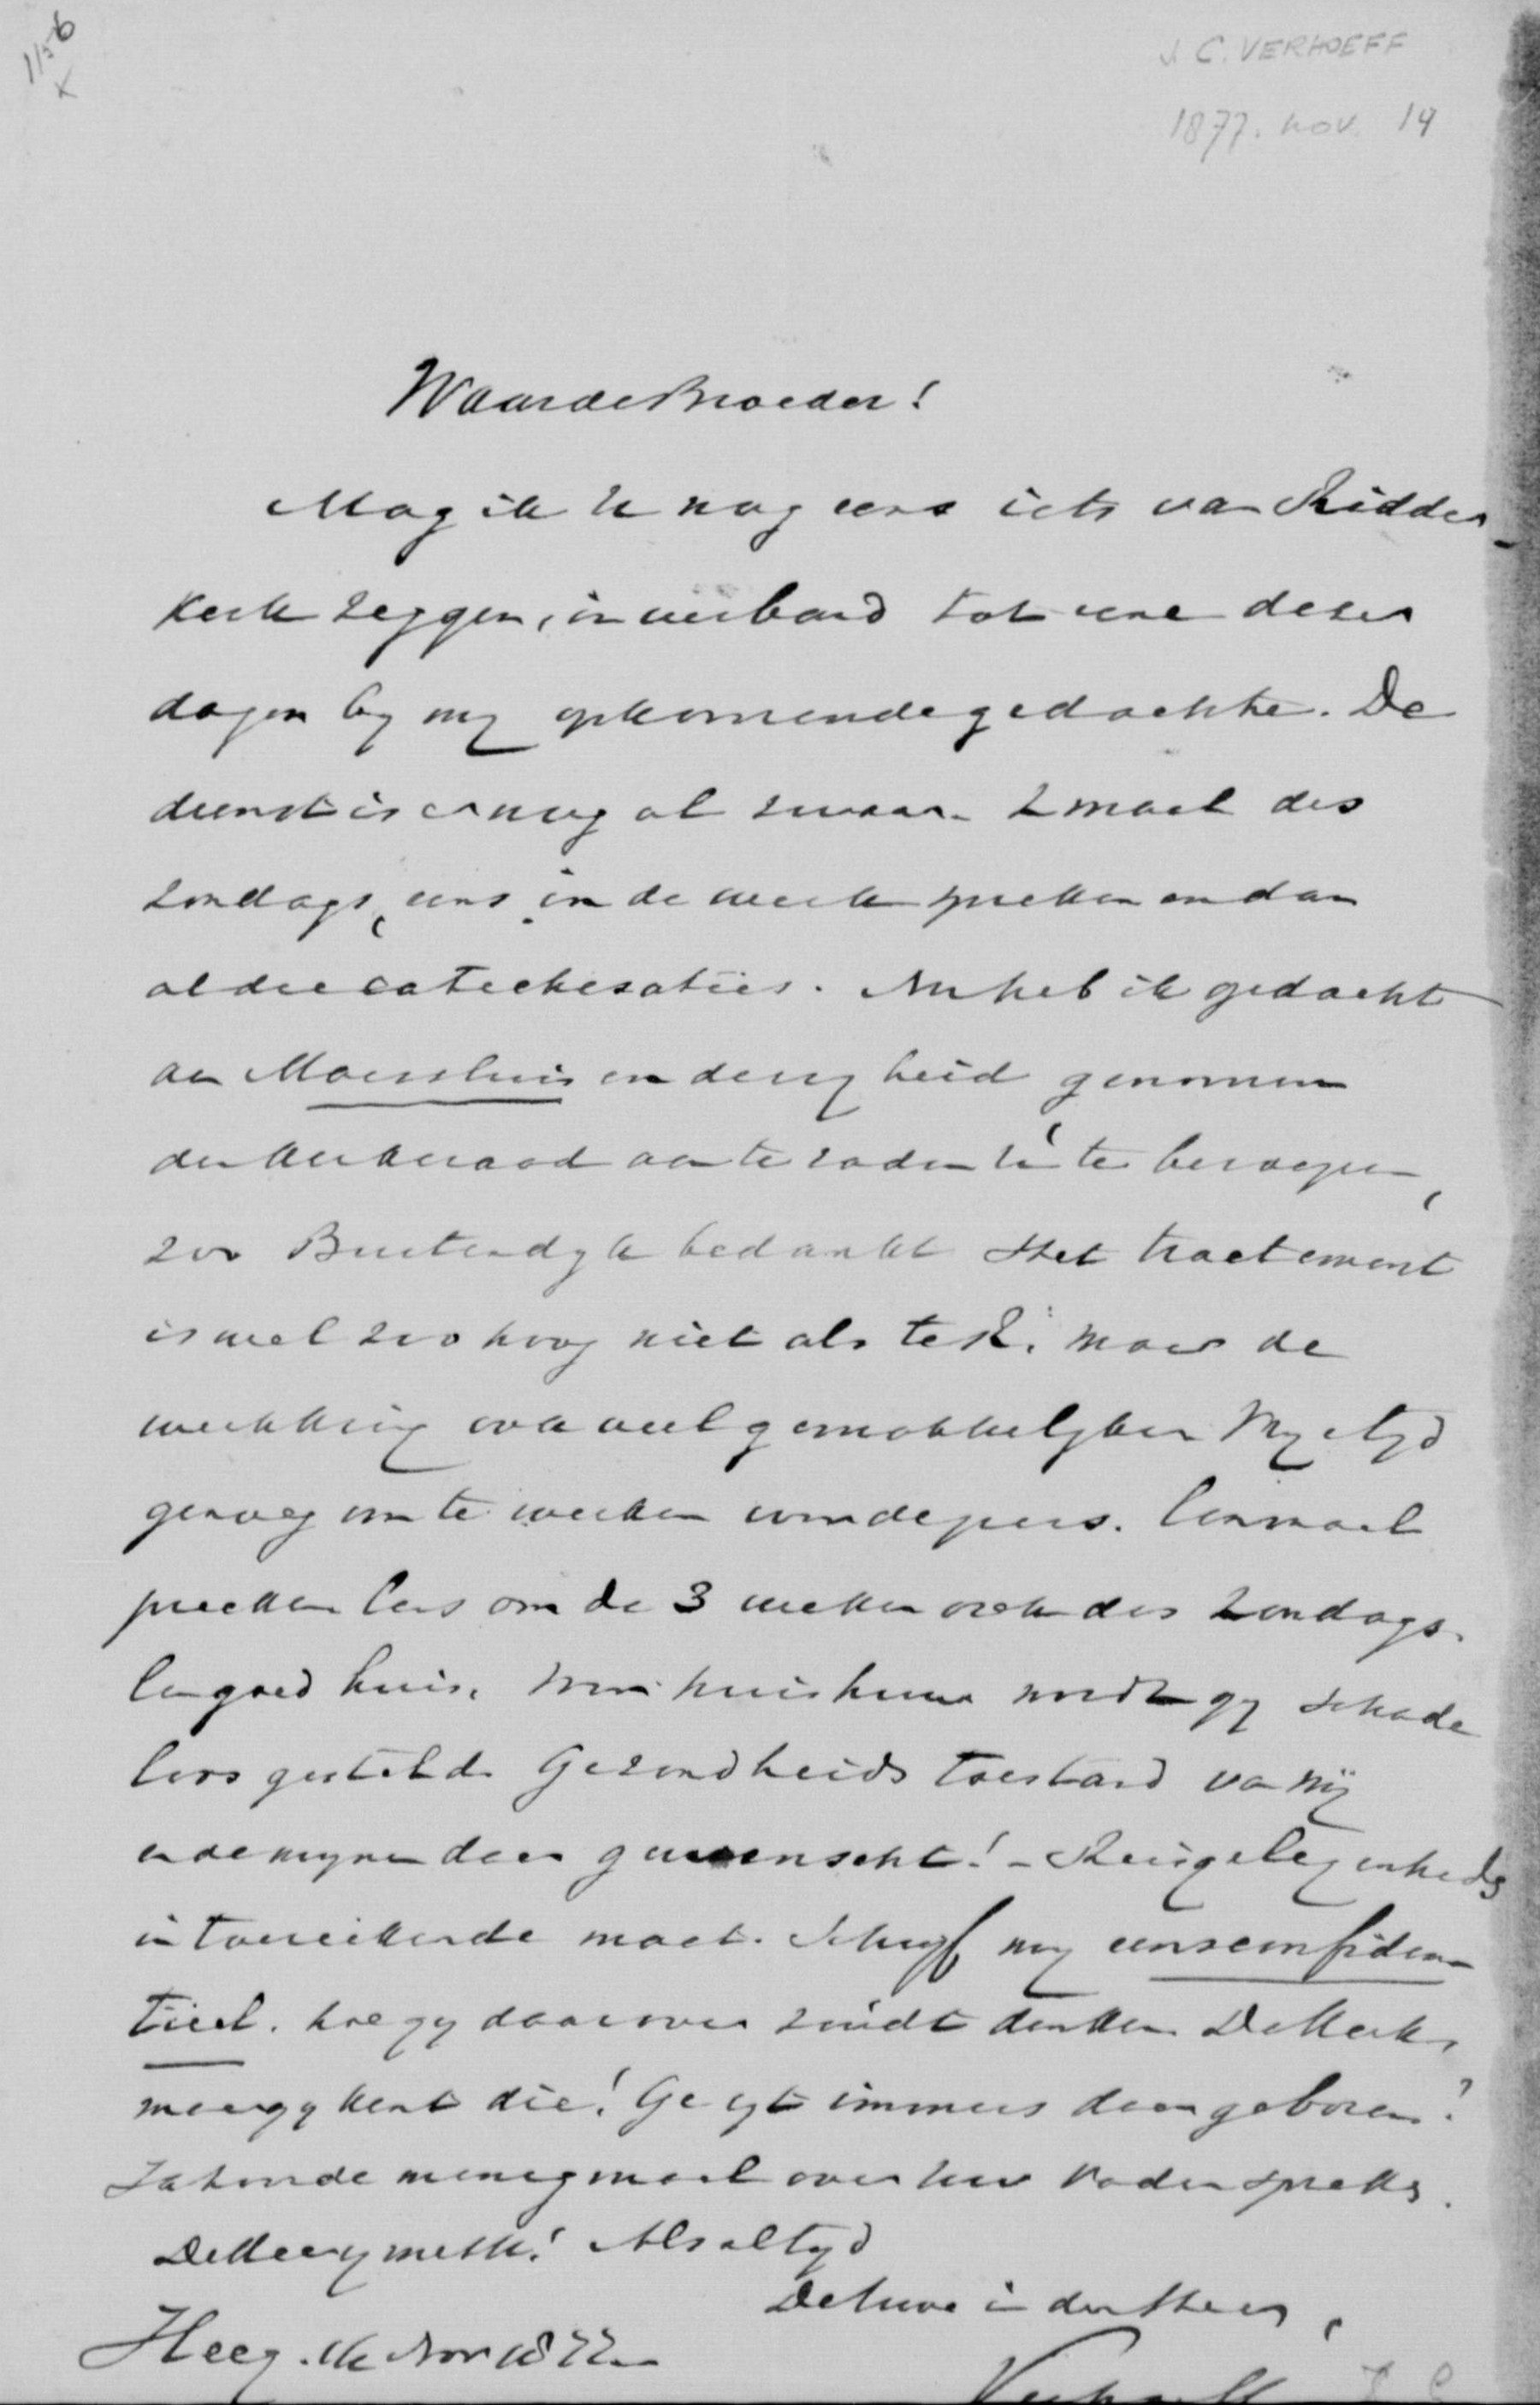 1156
x
J. C. VERHOEFF
1877. nov. 14
Waarde Broeder!
Mag ik U nog eens iets van Ridder-
kerk zeggen, in verband tot eene dezer
dagen by my opkomende gedachte. De
dienst is er nog al zwaar. 2 maal des
Zondags, eens in de week preken en dan
al die catechesatiës. Nu heb ik gedacht
aan Maassluis en de vryheid genomen
den kerkeraad aan te raden U te beroepen,
zoo Buitendyk bedankt. Het tractement
is wel zoo hoog niet als te R. maar de
werkkring ook veel gemakkelyker. Vry tyd
genoeg om te werken voor de pers. Eenmaal
preeken Eens om de 3 weken ook des Zondags.
Een goed huis. Voor huishuur wordt gy schade
loos gesteld. Gezondheids toestand van
en de mynen daar gewenscht! - Reisgelegenheids
in toereikende maat. Schryf my eens confiden-
tieel. hoe gy daarover zoudt denken De Maas
maar gy kent die! Ge zyt immers daar geboren?
Ik hoorde menigmaal over uw vader spreken.
De Heer zy met U.! Als altyd
De Uwe in den Heer,
Heeg. 14 Nov 1877.
Verhoeff